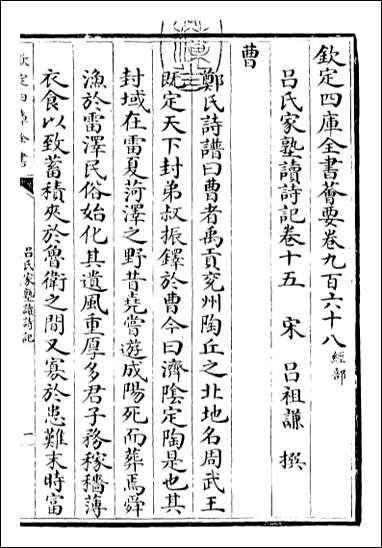 欽定四庫全書薈要卷九百六十八 經部
呂氏家塾讀詩記卷十五 宋 呂祖謙 撰
曹
鄭氏詩譜曰曹者禹貢兖州陶丘之北地名周武王
既定天下封弟叔振鐸於曹今曰濟陰定陶是也其
封域在雷夏菏澤之野昔堯嘗遊成陽死而葬焉舜
漁於雷澤民俗始化其遺風重厚多君子務稼穡薄
衣食以致蓄積夾於魯衛之間又寡於患難末時富
欽定四庫全書
呂氏家塾讀詩記
一